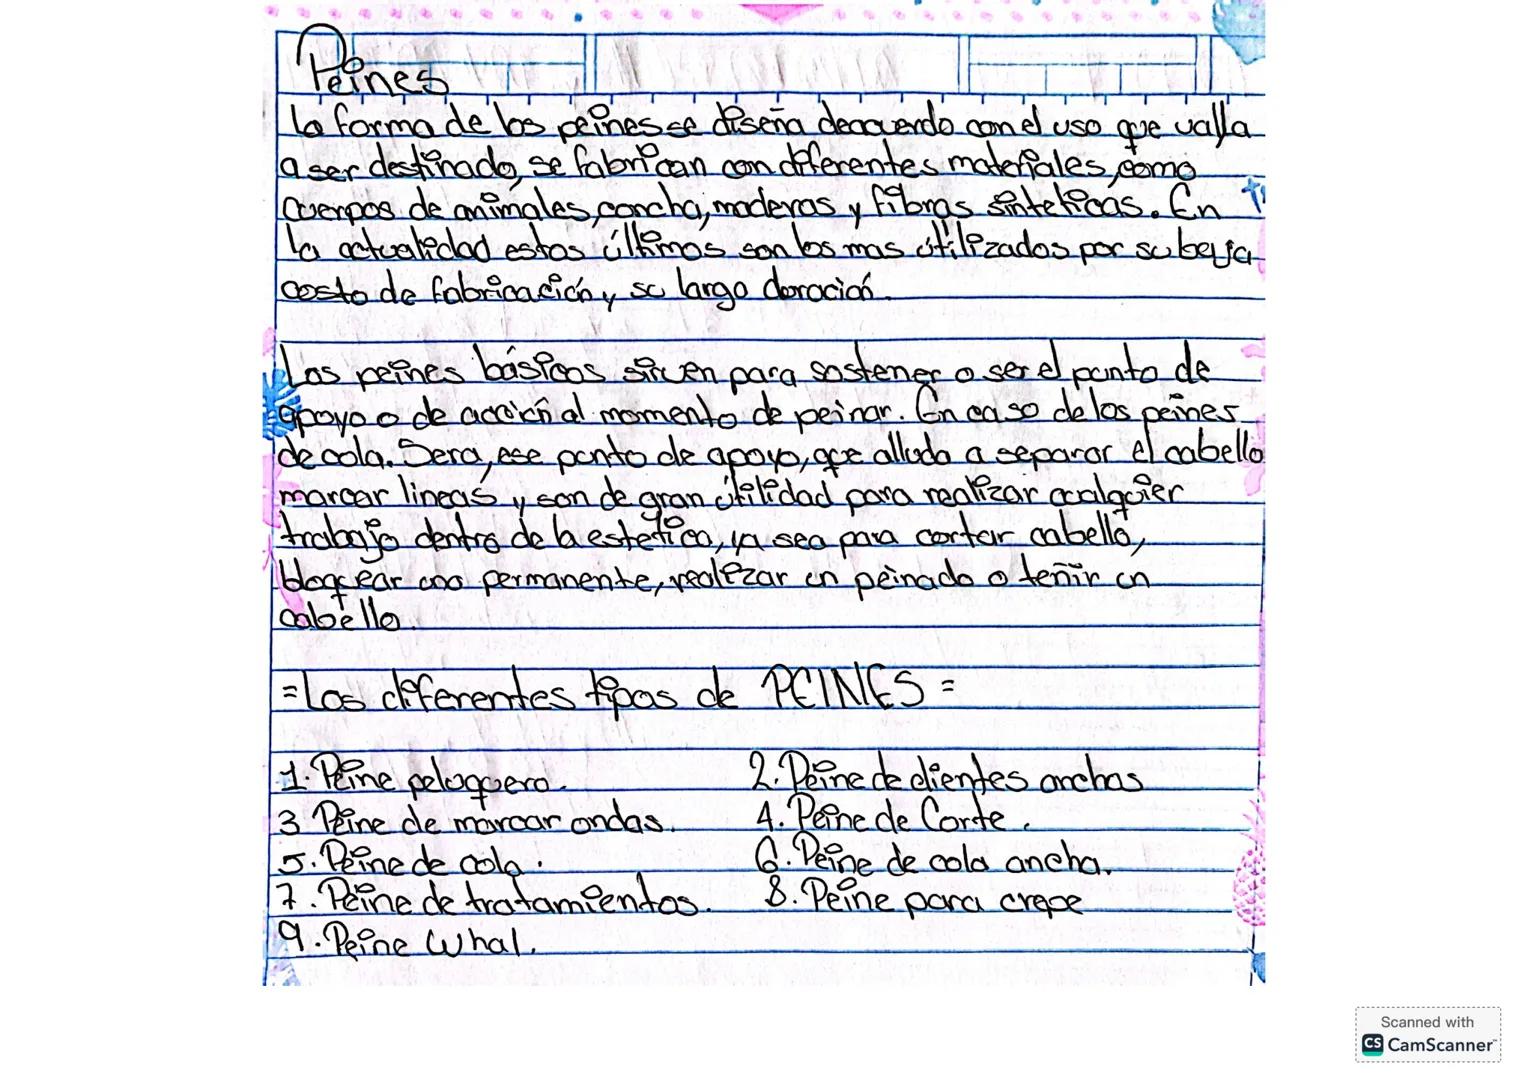 Peines
La forma de los peines se diseña deacuerdo con el uso que valla
a ser destinado, se fabrican con diferentes materiales, como
cuerpos de animales, concha, maderas y fibras sinteticas. En
la actualidad estos últimos son los mas útilizados por su
costo de fabricación y su largo duración.
Los peines básicos sirven para sostener o ser el punto de
apoyo o de acción al momento de peinar. En caso de los peines
de cola. Sera, ese punto de apoyo, que alluda a separar el cabello
marcar lineas y son de gran útilidad para realizar cualquier
trabajo dentro de la estetica, ya sea para cortar cabello,
bloquear una permanente, realizar un peinado o teñir un
cabello.
=Los diferentes tipos de PEINES=
1. Peine peluquero. 2. Peine de dientes anchos
3 Peine de marcar ondas. 4. Peine de Corte.
5. Peine de cola. 6. Peine de cola ancha.
7. Peine de tratamientos. 8. Peine para crepe
9. Peine Whal.
Scanned with
CS CamScanner